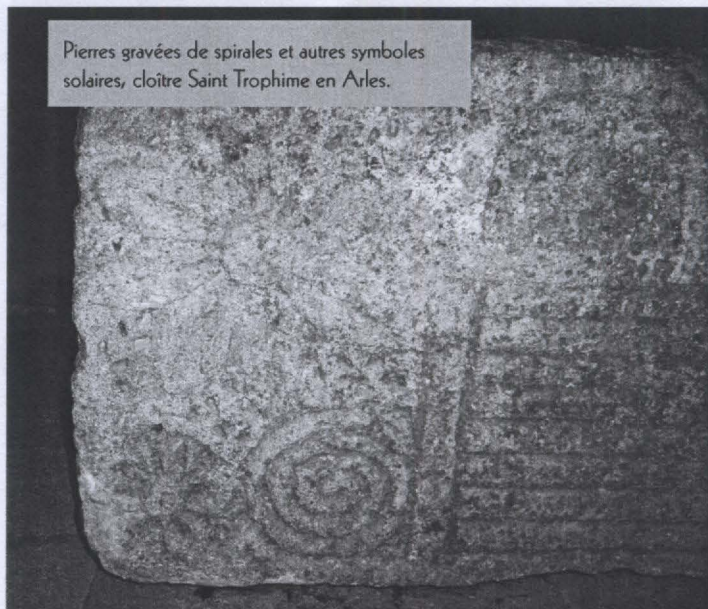 Pierres gravées de spirales et autres symboles
solaires, cloître Saint Trophime en Arles.